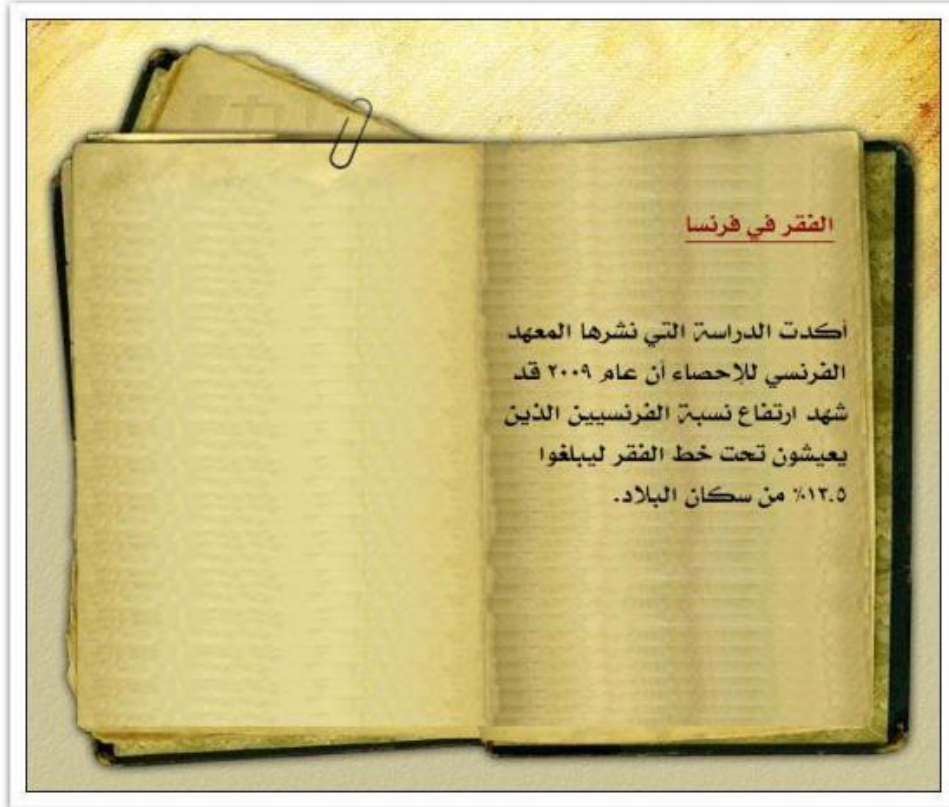 الفقر في فرنسا
أكدت الدراسة التي نشرها المعهد
الفرنسي للإحصاء أن عام ٢٠٠٩ قد
شهد ارتفاع نسبة الفرنسيين الذين
يعيشون تحت خط الفقر ليبلغوا
١٣.٥٪ من سكان البلاد.